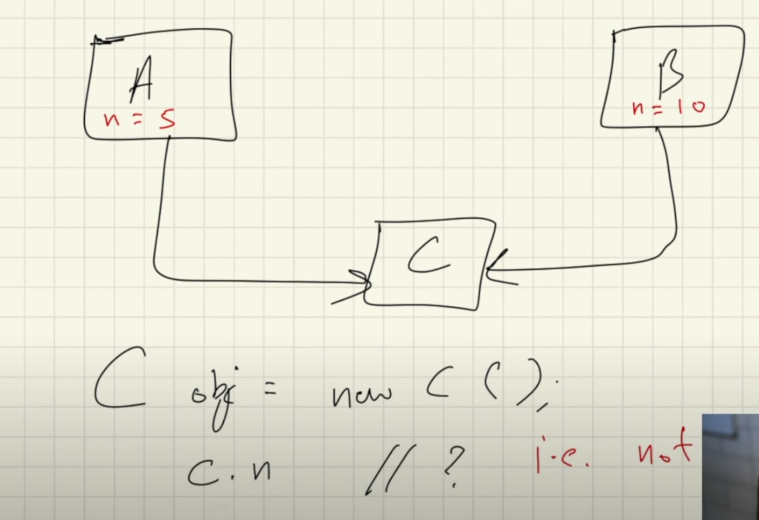 A
n = 5
B
n = 10
C
C obj = new C ();
C.n // ? i.e. not